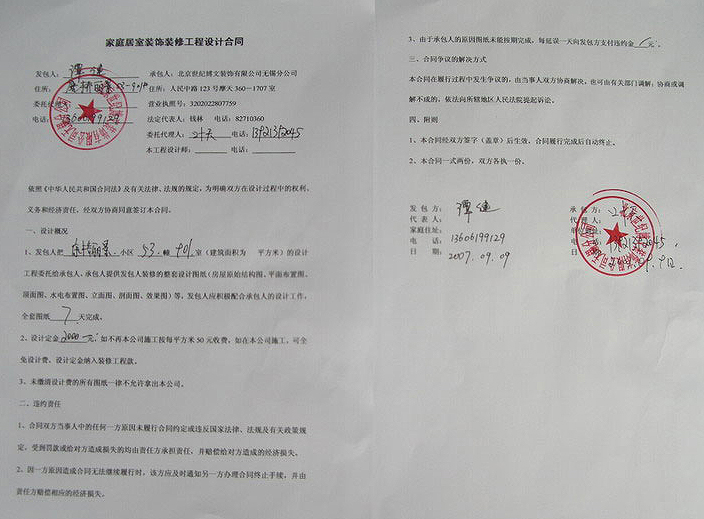 家庭居室装饰装修工程设计合同
发包人：谭健 承包人：北京世纪博文装饰有限公司无锡分公司
住所： 住所：人民中路 123 号摩天 360—1707 室
委托代 营业执照号：3202022807759
电话：13606199129 法定代表人：钱林 电话：82710360
委托代理人：叶夫 电话：13921312045
本工程设计师： 电话：
依照《中华人民共和国合同法》及有关法律、法规的规定，为明确双方在设计过程中的权利、
义务和经济责任，经双方协商同意签订本合同。
一、设计概况
1、发包人把 小区 53 幢 901 室（建筑面积为 平方米）的设计
工程委托给承包人，承包人提供发包人装修的整套设计图纸（房屋原始结构图、平面布置图、
顶面图、水电布置图、立面图、剖面图、效果图）等，发包人应积极配合承包人的设计工作，
全套图纸 7 天完成。
2、设计定金 2000 元；如不再本公司施工按每平方米 50 元收费，如在本公司施工，可全
免设计费、设计定金纳入装修工程款。
3、未缴清设计费的所有图纸一律不允许拿出本公司。
二、违约责任
1、合同双方当事人中的任何一方原因未履行合同约定或违反国家法律、法规及有关政策规
定，受到罚款或给对方造成损失的均由责任方承担责任，并赔偿给对方造成的经济损失。
2、因一方原因造成合同无法继续履行时，该方应及时通知另一方办理合同终止手续，并由
责任方赔偿相应的经济损失。
3、由于承包人的原因图纸未能按期完成，每延误一天向发包方支付违约金 元。
三、合同争议的解决方式
本合同在履行过程中发生争议的，由当事人双方协商解决，也可由有关部门调解；协商或调
解不成的，依法向所辖地区人民法院提起诉讼。
四、附则
1、本合同经双方签字（盖章）后生效，合同履行完成后自动终止。
2、本合同一式两份，双方各执一份。
发包方：谭健 承包方：
代表人： 代表人：
家庭住址：
电话：13606199129 电话：13921312045
日期：2007.09.09